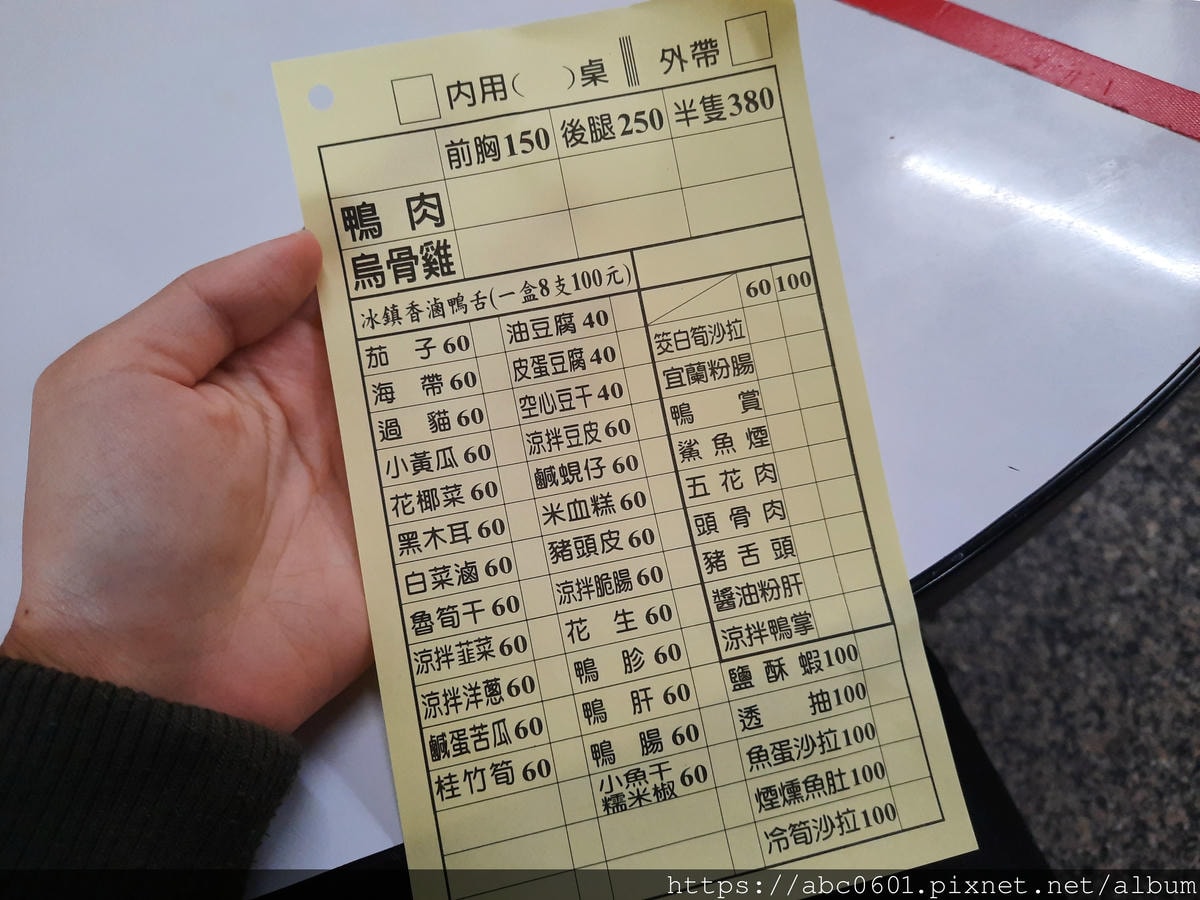 內用( )桌 外帶
前胸150 後腿250 半隻380
鴨肉
烏骨雞
冰鎮香滷鴨舌(一盒8支100元)
茄子60
海帶60
過貓60
小黃瓜60
花椰菜60
黑木耳60
白菜滷60
魯筍干60
涼拌韮菜60
涼拌洋蔥60
鹹蛋苦瓜60
桂竹筍60
油豆腐40
皮蛋豆腐40
空心豆干40
涼拌豆皮60
鹹蜆仔60
米血糕60
豬頭皮60
涼拌脆腸60
花生60
鴨胗60
鴨肝60
鴨腸60
小魚干
糯米椒60
60 100
筊白筍沙拉
宜蘭粉腸
鴨賞
鯊魚煙
五花肉
頭骨肉
豬舌頭
醬油粉肝
涼拌鴨掌
鹽酥蝦100
透抽100
魚蛋沙拉100
煙燻魚肚100
冷筍沙拉100
https://abc0601.pixnet.net/album